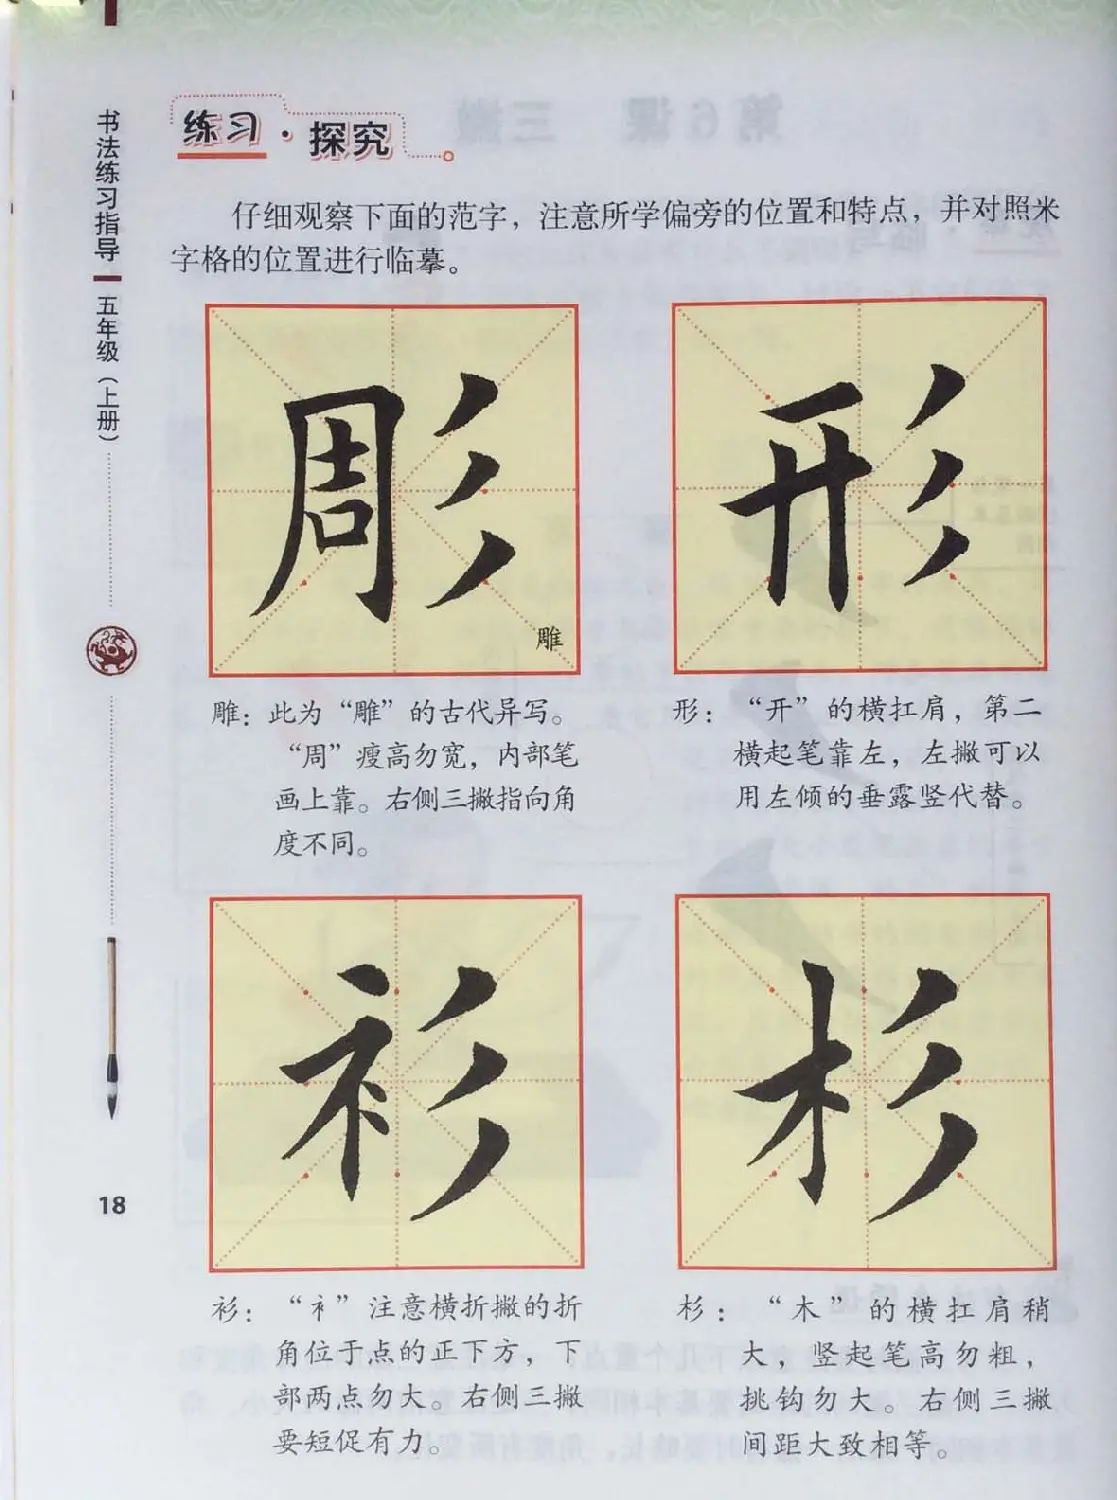 书法练习指导
五年级（上册）
18
练习·探究
仔细观察下面的范字，注意所学偏旁的位置和特点，并对照米
字格的位置进行临摹。
彫
雕
形
雕：此为“雕”的古代异写。
“周”瘦高勿宽，内部笔
画上靠。右侧三撇指向角
度不同。
形：“开”的横扛肩，第二
横起笔靠左，左撇可以
用左倾的垂露竖代替。
衫
杉
衫：“衤”注意横折撇的折
角位于点的正下方，下
部两点勿大。右侧三撇
要短促有力。
杉：“木”的横扛肩稍
大，竖起笔高勿粗，
挑钩勿大。右侧三撇
间距大致相等。